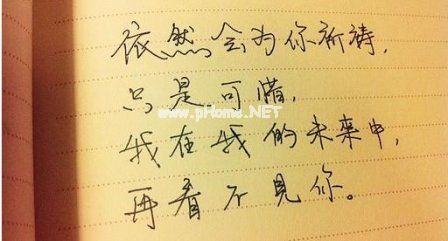 依然会为你祈祷,
只是可惜,
www.pHome.NET
我在我的未来中,
再看不見你。